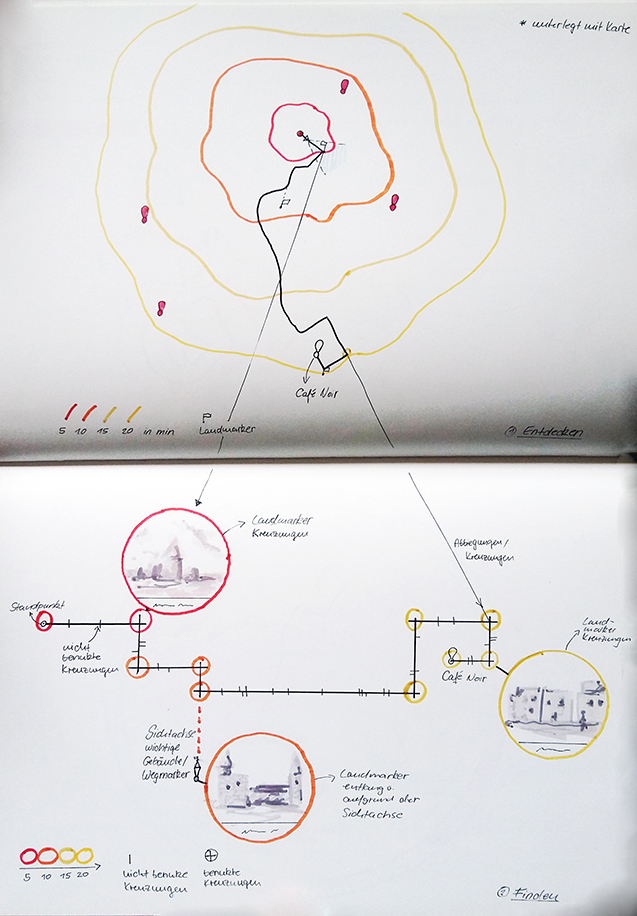 * unterlegt mit Karte
Café Noir
5 10 15 20 in min
Landmarker
① Entdecken
Landmarker
Kreuzungen
Abbiegungen/
Kreuzungen
Standpunkt
nicht
benutzte
Kreuzungen
Land-
marker
Kreuzungen
Café Noir
Sichtachse
wichtige
Gebäude/
Wegmarker
Landmarker
entlang o.
aufgrund der
Sichtachse
5 10 15 20
nicht benutze
Kreuzungen
benutzte
Kreuzungen
② Finden